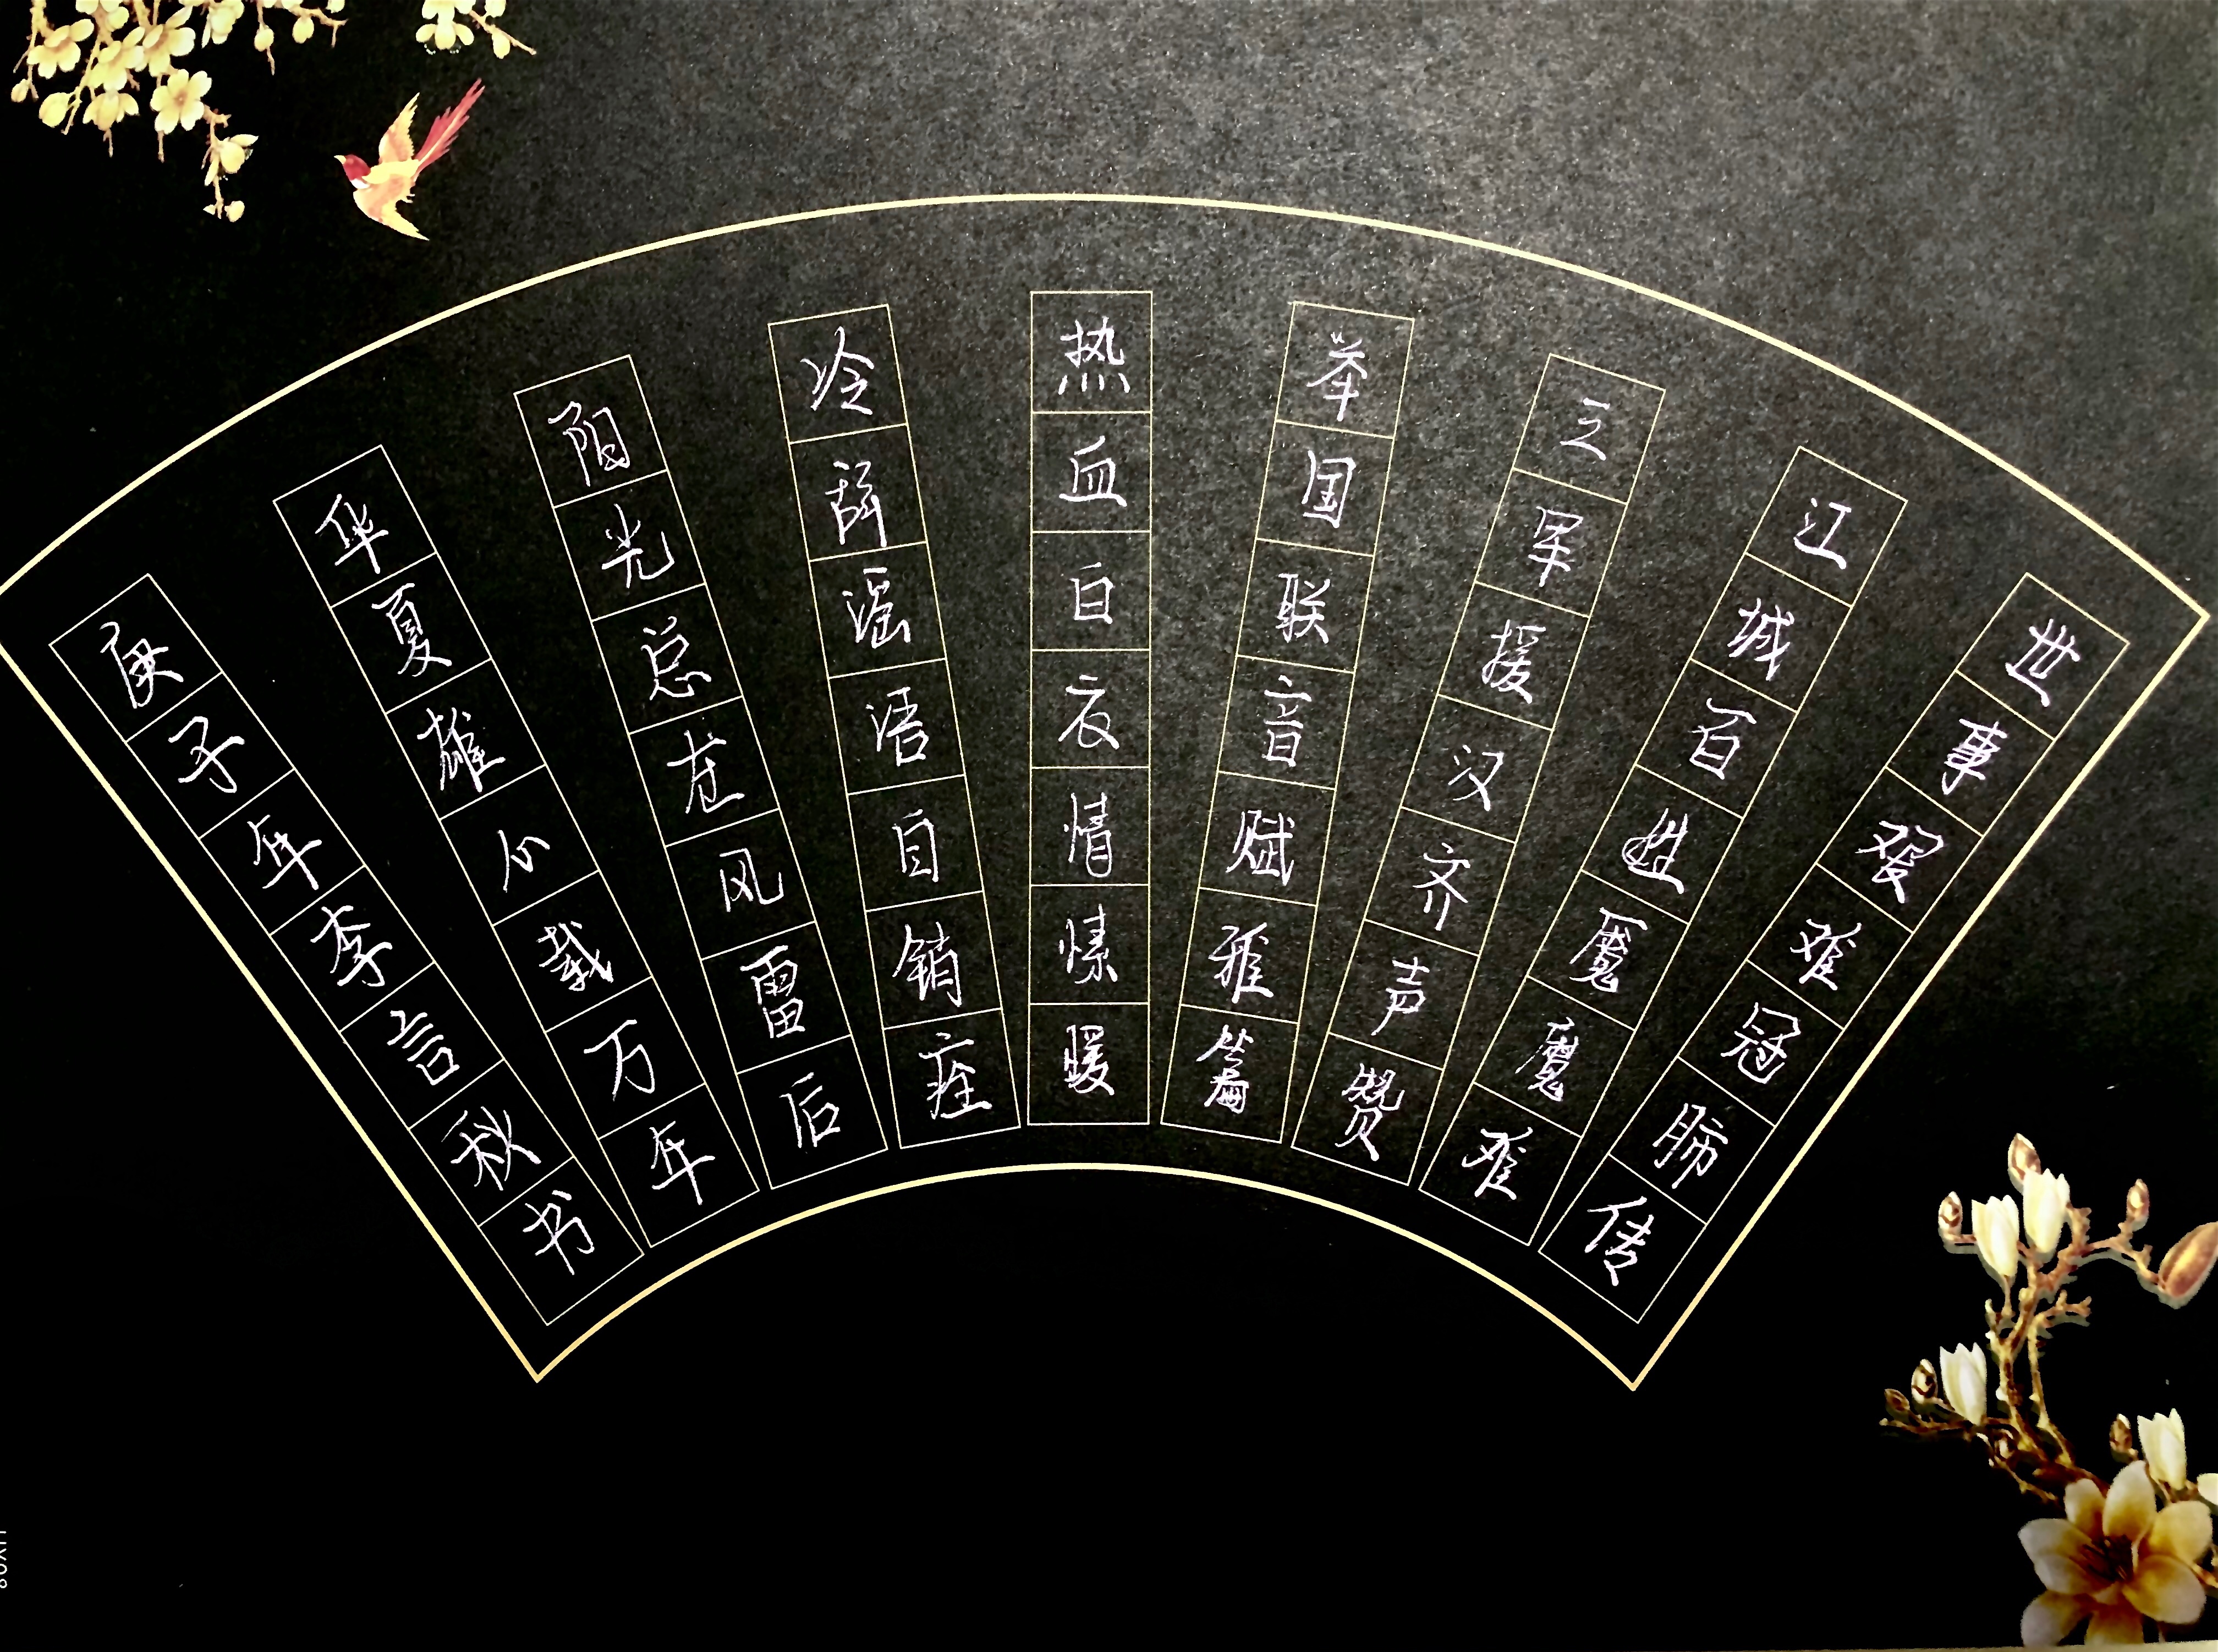 世事艰难冠肺传
江城百姓魇魔难
三军援汉齐声赞
举国联音赋雅篇
热血白衣情愫暖
冷辞谣语自销痊
阳光总在风雷后
华夏雄心载万年
庚子年李言秋书